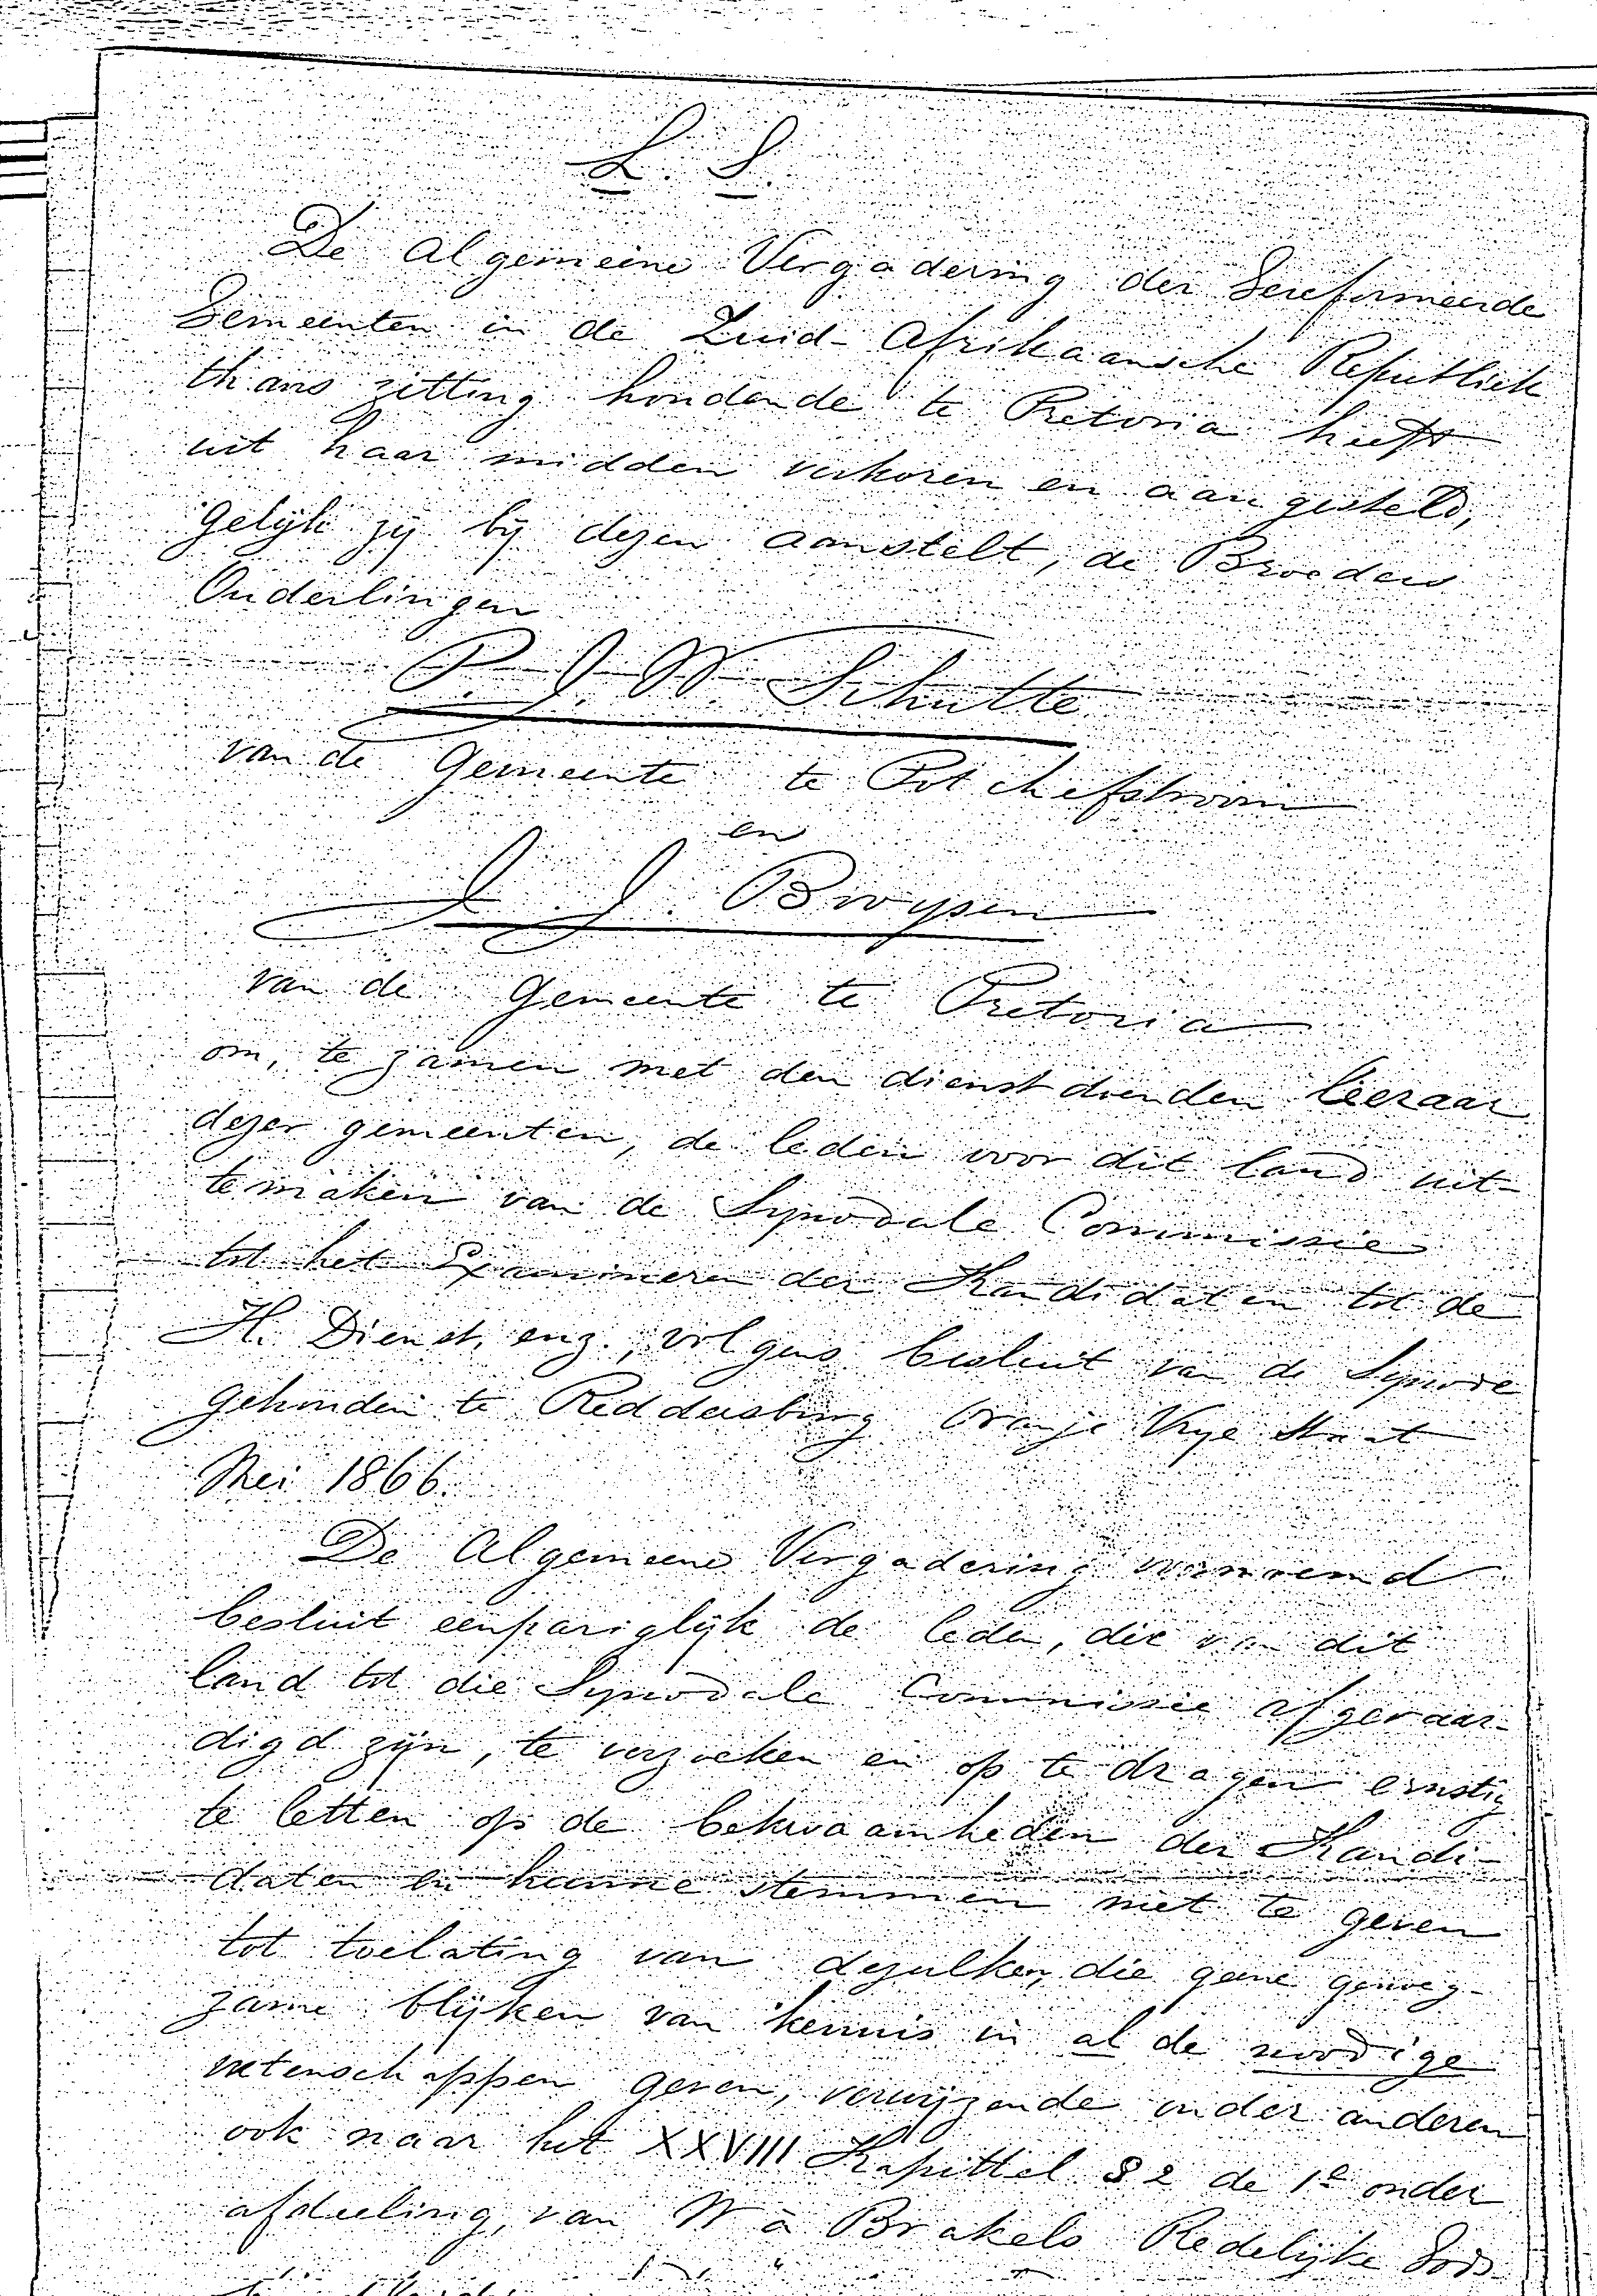 L. S.
De Algemeene Vergadering der Gereformeerde
Gemeenten in de Zuid-Afrikaansche Republiek
thans zitting houdende te Pretoria heeft
uit haar midden verkoren en aangesteld,
Gelijk zij bij dezen aanstelt, de Broeders
Ouderlingen
P. J. W. Schutte
van de Gemeente te Potchefstroom
en
J. J. Booysen
van de Gemeente te Pretoria
om, te zamen met den dienstdoenden leeraar
dezer gemeenten, de leden voor dit land uit-
temaken van de Synodale Commissie
tot het Examineren der Kandidaten tot de
H. Dienst, enz., volgens besluit van de Synode
gehouden te Reddersburg Oranje Vrye Staat
Mei 1866.
De Algemeene Vergadering voornoemd
besluit eenpariglijk de leden, die van dit
land tot die Synodale Commissie afgevaar-
digd zijn, te verzoeken en op te dragen ernstig
te letten op de bekwaamheden der Kandi-
daten en hunne stemmen niet te geven
tot toelating van dezulken, die geene genoeg-
zame blijken van kennis in al de noodige
wetenschappen geven, verwijzende onder anderen
ook naar het XXVIII Kapittel § 2 de 1e onder
afdeeling, van W à Brakels Redelijke Gods